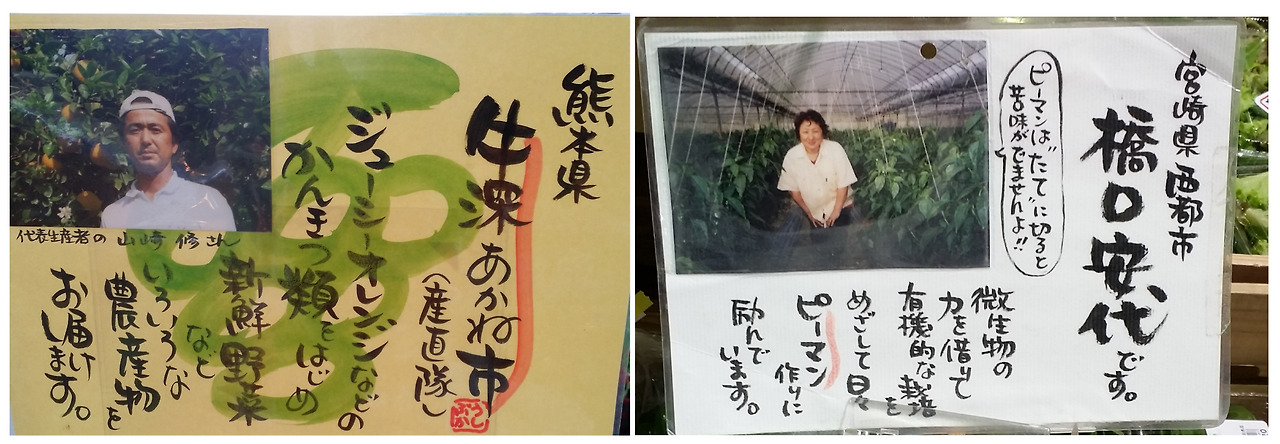 熊本県
牛深あかね市
（産直隊）
ジューシーオレンジなどの
かんきつ類をはじめ
新鮮野菜
など
いろいろな
農産物を
お届け
します。
代表生産者の 山崎 修さん
うし
ぶか
宮崎県西都市
橋口安代です。
ピーマンは“たて”に切ると
苦味がでませんよ!!
微生物の
力を借りて
有機的な栽培を
めざして日々
ピーマン作りに
励んで
います。